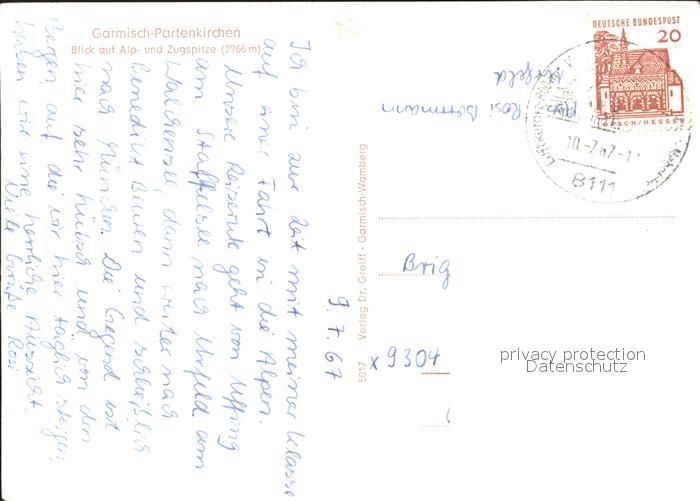 Garmisch-Partenkirchen
Blick auf Alp- und Zugspitze (2966 m)
9.7.67
Ich bin zur Zeit mit meiner Klasse
auf einer Fahrt in die Alpen.
Unsere Reiseroute geht von Uffing
am Staffelsee nach Urfeld am
Walchensee, dann weiter nach
Benedikt Beuren und schließlich
nach München. Die Gegend ist
hier sehr hübsch und von den
Bergen auf die wir hier täglich steigen,
haben wir eine herrliche Aussicht.
Viele Grüße Rosi
5017 Verlag Dr. Greiff - Garmisch-Wamberg
Abs Rosi
Urfeld
DEUTSCHE BUNDESPOST
20
LORSCH/HESSEN
10.-7.67-
8111
Brig
x 9304
privacy protection
Datenschutz